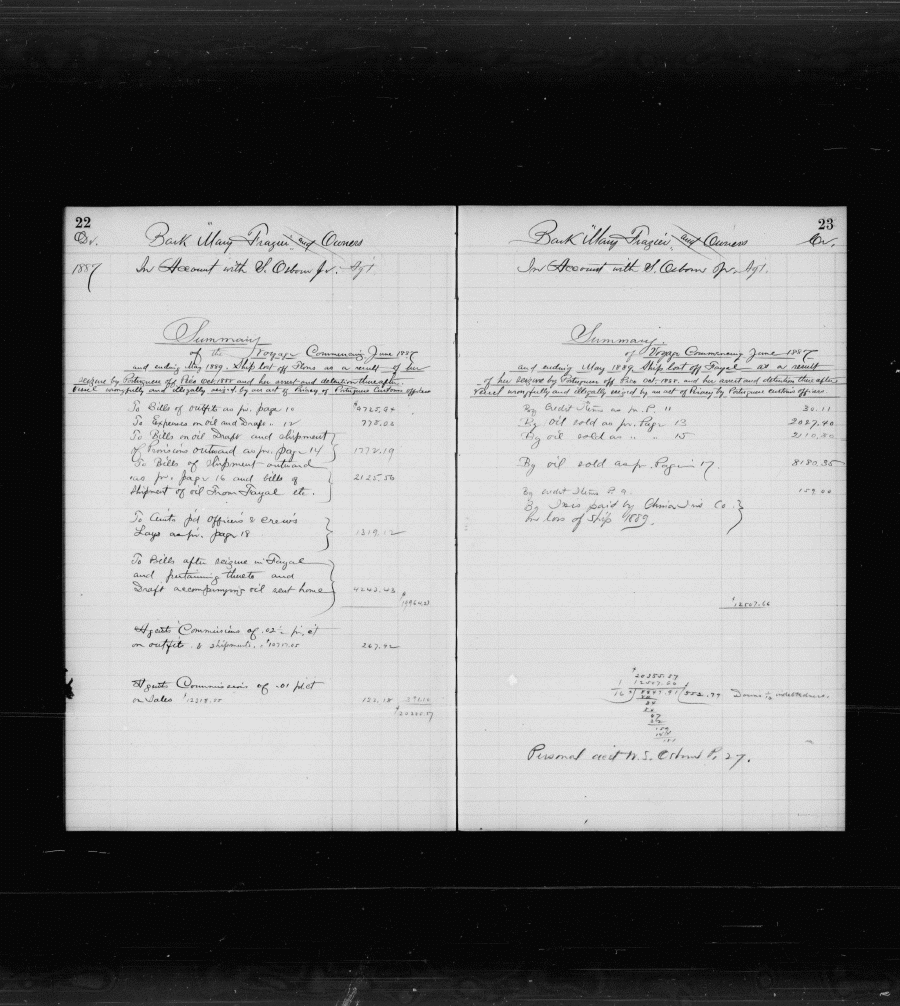 22
Dr.
Bark "Mary Frazier" and Owners
1887
In Account with S. Osborn Jr. Agt
Summary
of the Voyage Commencing June 1887
and ending May 1889. Ship lost off as a result of her
seizure by Portuguese off Pico Oct. 1888 and her arrest and detention thereafter.
Vessel wrongfully and illegally seized by an act of Piracy by Portuguese Customs officers
To Bills of outfits as pr. page 10
To Expenses on oil and Draft " 12
To Bills on oil Draft and shipment
of Provisions outward as pr. page 14 1772.19
To Bills of Shipment outward
as pr. page 16 and bills of 2125.50
Shipment of oil From Fayal etc.
To Am'ts p'd Officer's & Crew's
Lays as pr. page 18 1319.12
To Bills after seizure in Fayal
and pertaining thereto and
Draft accompanying oil sent home 4243.43
Agents Commissions of .02½ pr. ct
on outfits & shipments. 267.92
Agents Commissions of .01 pr ct
on Sales 12318.55 123.18
23
Bark "Mary Frazier" and Owners
Cr.
In Account with S. Osborn Jr. Agt.
Summary
of Voyage Commencing June 1887
and ending May 1889. Ship lost off Fayal as a result
of her seizure by Portuguese off Pico Oct. 1888. and her arrest and detention thereafter
Vessel wrongfully and illegally seized by an act of Piracy by Portuguese Customs officers.
By Credit Items as pr. P. 11 30.11
By oil sold as pr. Page 13 2027.40
By oil sold as " " 15 2110.80
By oil sold as pr. Page 17. 8180.35
By credit Items P. 9. 159.00
By Ins paid by China Ins Co.
for loss of ship 1889.
$12507.66
12507.66
Personal acct W. S. Osborn P. 27.